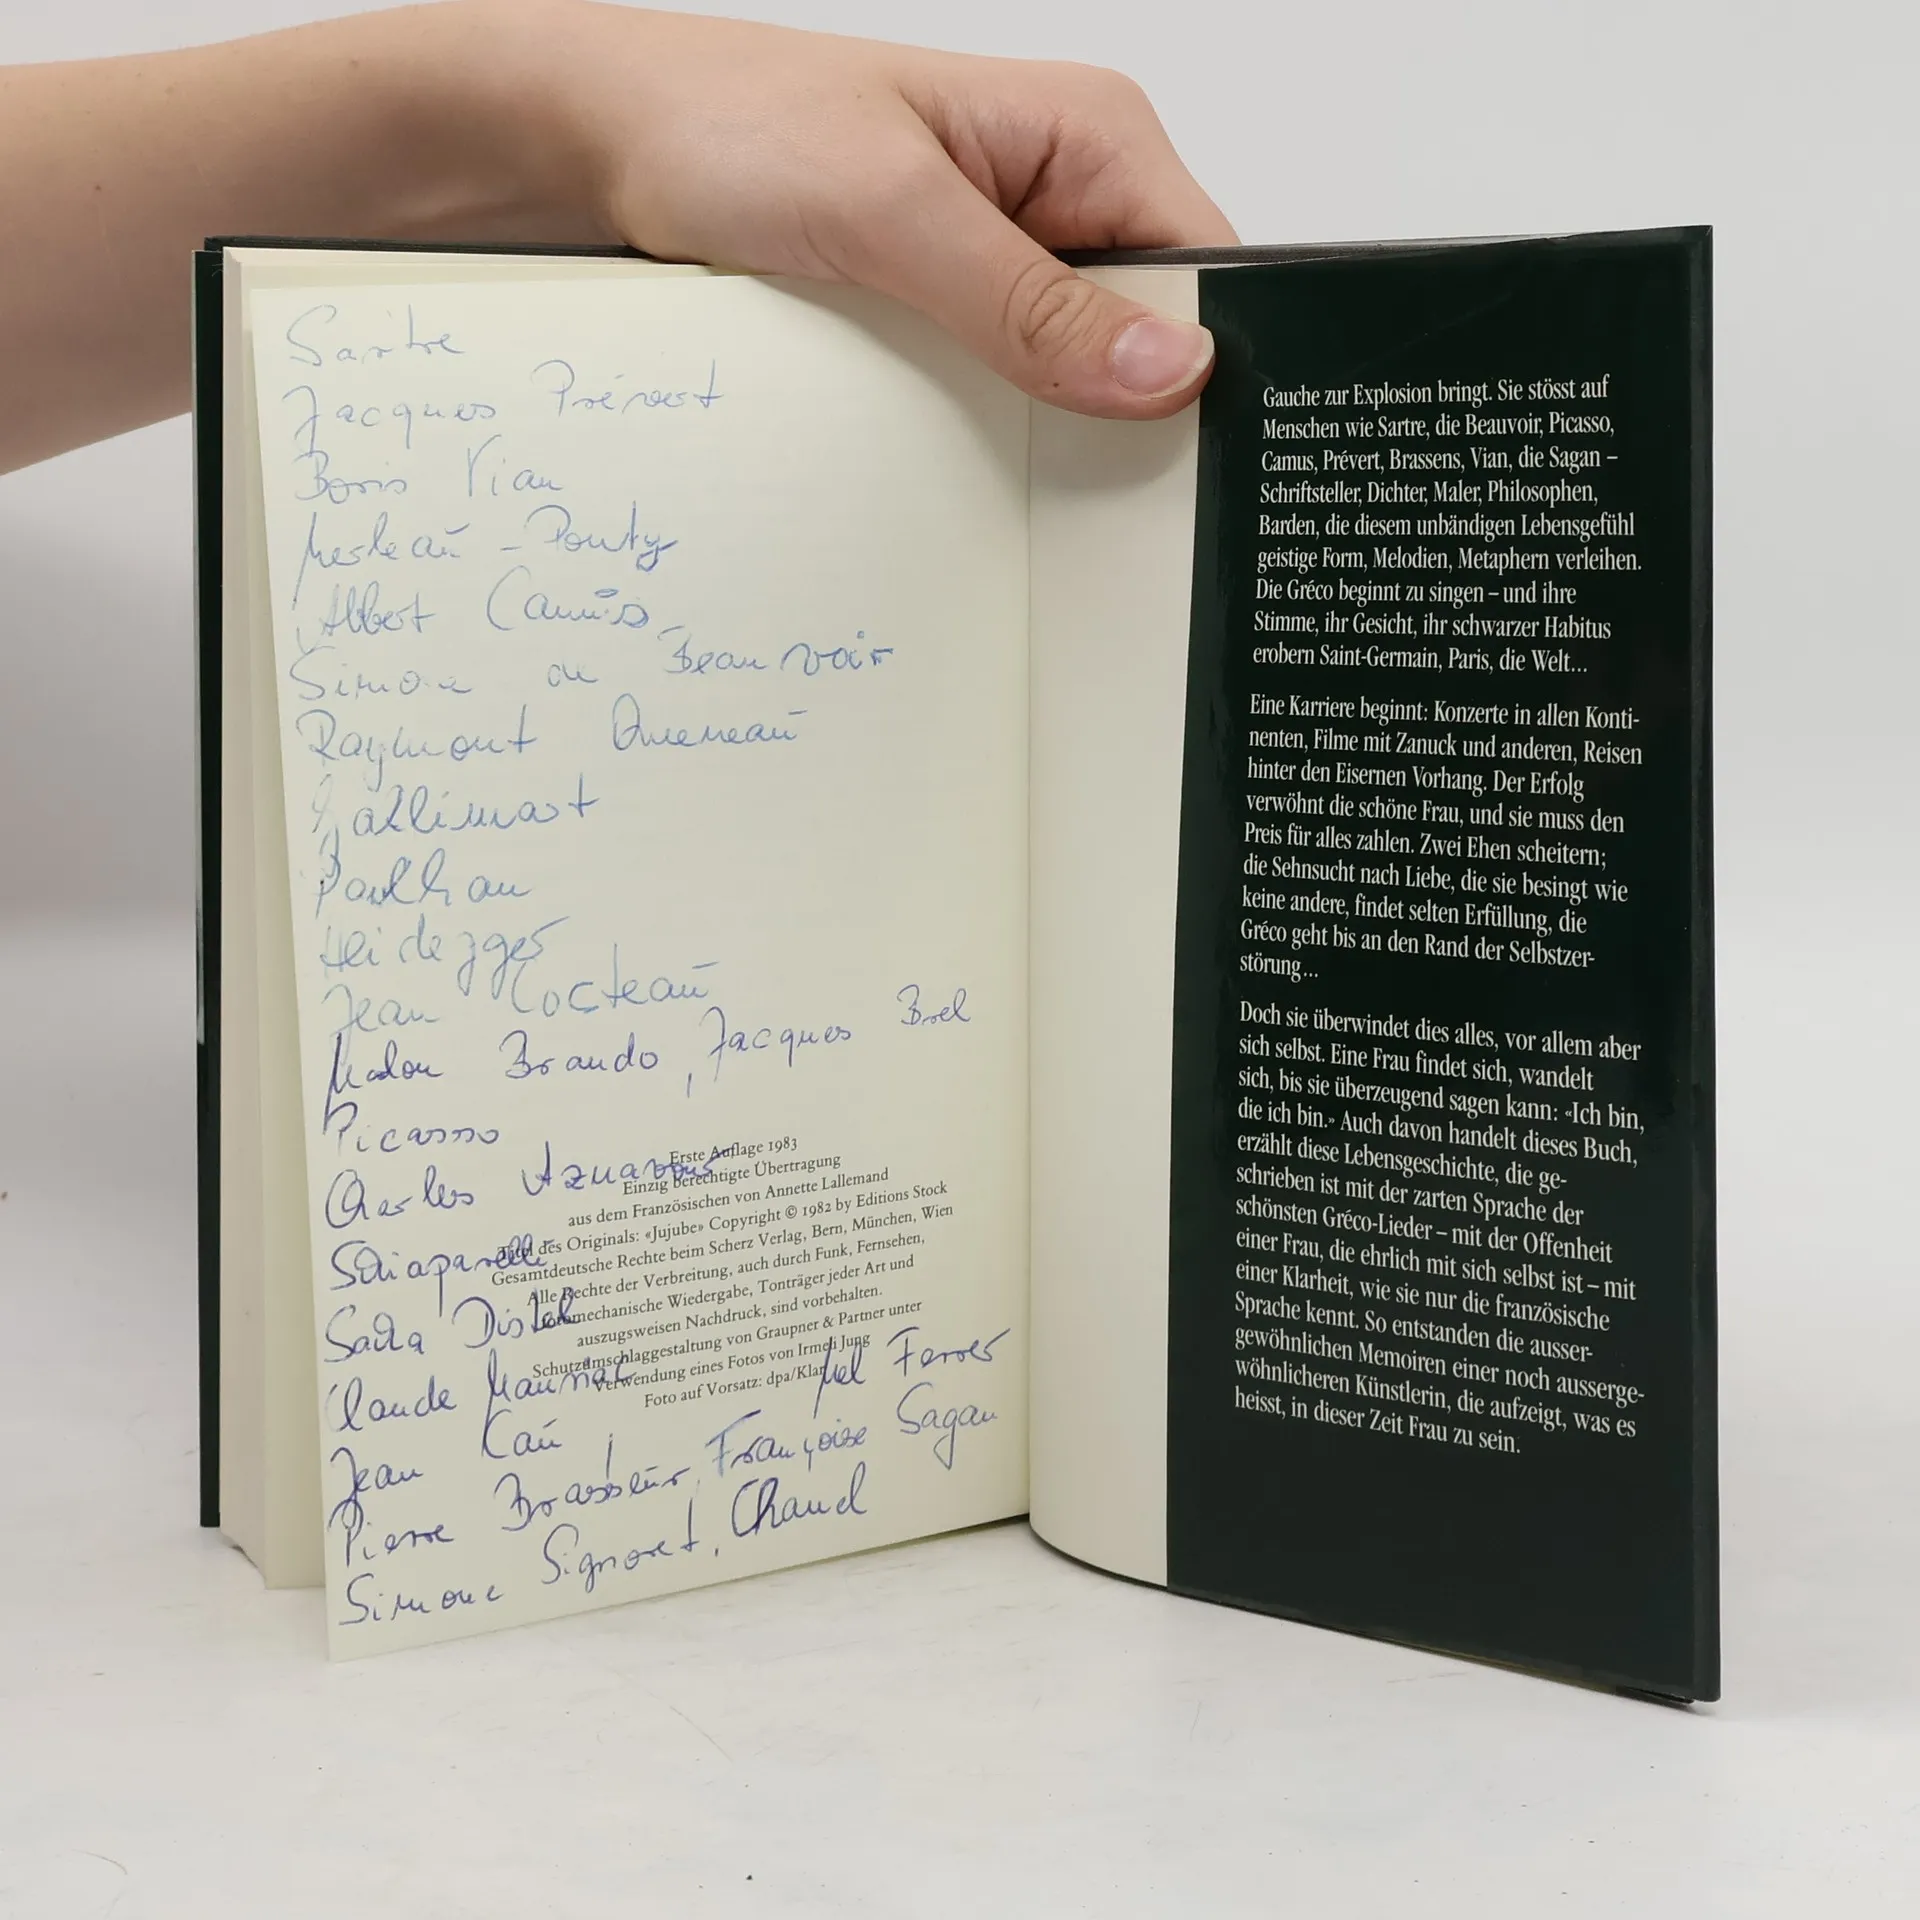 Sartre
Jacques Prévert
Boris Vian
Merleau - Ponty
Albert Camus
Simone de Beauvoir
Raymont Queneau
Gallimart
Paulhan
Heidegger
Jean Cocteau
Malon Brando, Jacques Brel
Picasso
Charles Aznavour
Schiaparelli
Sacha Distel
Claude Mauriac
Mel Ferrer
Jean Cau,
Pierre Brasseur, Françoise Sagan
Simone Signoret, Chaud
Erste Auflage 1983
Einzig berechtigte Übertragung
aus dem Französischen von Annette Lallemand
Titel des Originals: «Jujube» Copyright © 1982 by Editions Stock
Gesamtdeutsche Rechte beim Scherz Verlag, Bern, München, Wien
Alle Rechte der Verbreitung, auch durch Funk, Fernsehen,
fotomechanische Wiedergabe, Tonträger jeder Art und
auszugsweisen Nachdruck, sind vorbehalten.
Schutzumschlaggestaltung von Graupner & Partner unter
Verwendung eines Fotos von Irmeli Jung
Foto auf Vorsatz: dpa/Klar
Gauche zur Explosion bringt. Sie stösst auf
Menschen wie Sartre, die Beauvoir, Picasso,
Camus, Prévert, Brassens, Vian, die Sagan –
Schriftsteller, Dichter, Maler, Philosophen,
Barden, die diesem unbändigen Lebensgefühl
geistige Form, Melodien, Metaphern verleihen.
Die Gréco beginnt zu singen – und ihre
Stimme, ihr Gesicht, ihr schwarzer Habitus
erobern Saint-Germain, Paris, die Welt...
Eine Karriere beginnt: Konzerte in allen Konti-
nenten, Filme mit Zanuck und anderen, Reisen
hinter den Eisernen Vorhang. Der Erfolg
verwöhnt die schöne Frau, und sie muss den
Preis für alles zahlen. Zwei Ehen scheitern;
die Sehnsucht nach Liebe, die sie besingt wie
keine andere, findet selten Erfüllung, die
Gréco geht bis an den Rand der Selbstzer-
störung...
Doch sie überwindet dies alles, vor allem aber
sich selbst. Eine Frau findet sich, wandelt
sich, bis sie überzeugend sagen kann: «Ich bin,
die ich bin.» Auch davon handelt dieses Buch,
erzählt diese Lebensgeschichte, die ge-
schrieben ist mit der zarten Sprache der
schönsten Gréco-Lieder – mit der Offenheit
einer Frau, die ehrlich mit sich selbst ist – mit
einer Klarheit, wie sie nur die französische
Sprache kennt. So entstanden die ausser-
gewöhnlichen Memoiren einer noch ausserge-
wöhnlicheren Künstlerin, die aufzeigt, was es
heisst, in dieser Zeit Frau zu sein.